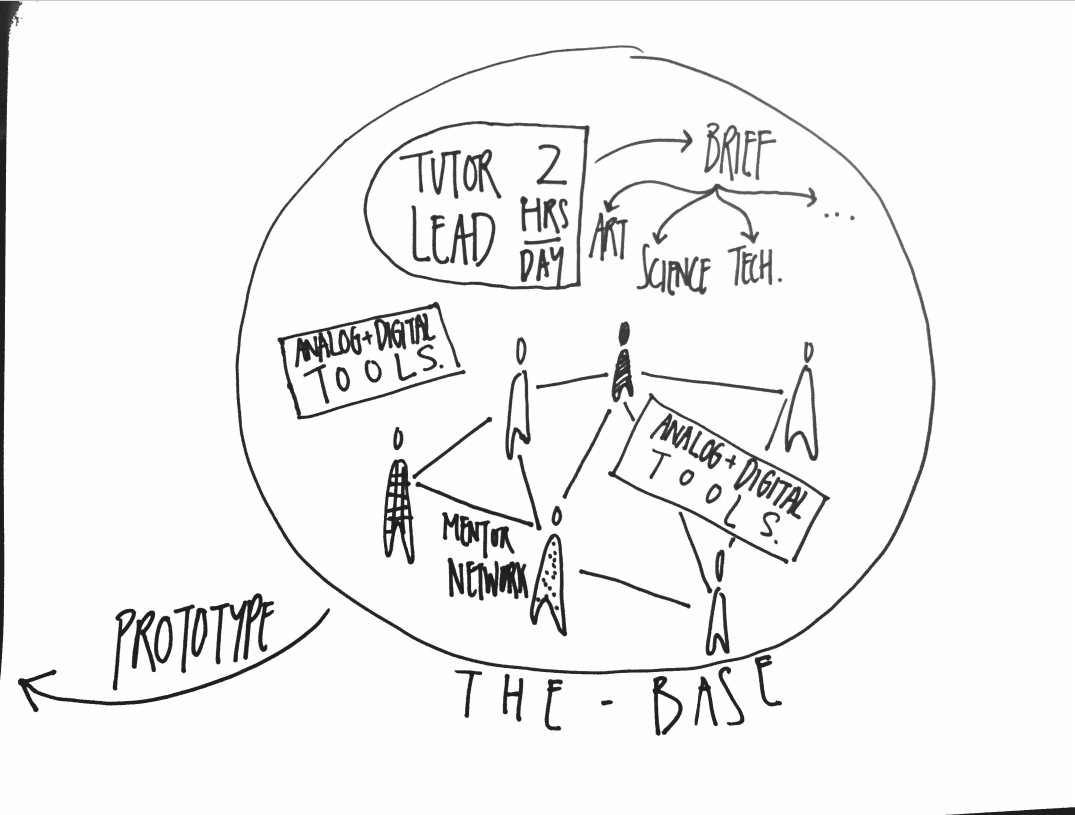 TUTOR 2
LEAD HRS
DAY
BRIEF
ART
SCIENCE TECH.
...
ANALOG + DIGITAL
TOOLS.
ANALOG + DIGITAL
TOOLS.
MENTOR
NETWORK
PROTOTYPE
THE - BASE